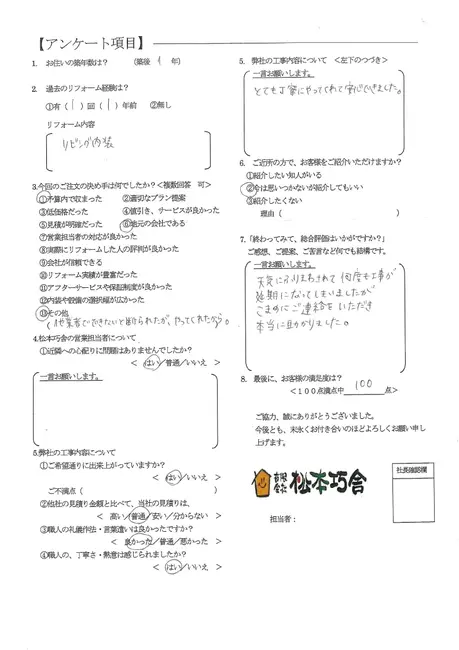 【アンケート項目】
1. お住いの築年数は? (築後 1 年)
2. 過去のリフォーム経験は?
①有 ( 1 ) 回 ( 1 ) 年前 ②無し
リフォーム内容
リビング内装
3.今回のご注文の決め手は何でしたか?<複数回答 可>
①予算内で収まった ②適切なプラン提案
③低価格だった ④値引き、サービスが良かった
⑤見積が明確だった ⑥地元の会社である
⑦営業担当者の対応が良かった
⑧実際にリフォームした人の評判が良かった
⑨会社が信頼できる
⑩リフォーム実績が豊富だった
⑪アフターサービスや保証制度が良かった
⑫内装や設備の選択幅が広かった
⑬その他
(他業者でできないと断られたが、やってくれたから。)
4.松本巧舎の営業担当者について
①近隣への心配りに問題はありませんでしたか?
< はい/普通/いいえ >
一言お願いします。
5.弊社の工事内容について
①ご希望通りに出来上がっていますか?
< はい/いいえ >
ご不満点 ( )
②他社の見積り金額と比べて、当社の見積りは、
< 高い/普通/安い/分からない >
③職人の礼儀作法・言葉遣いは良かったですか?
< 良かった/普通/悪かった >
④職人の、丁寧さ・熱意は感じられましたか?
< はい/いいえ >
5. 弊社の工事内容について <左下のつづき>
一言お願いします。
とても丁寧にやってくれて安心できました。
6. ご近所の方で、お客様をご紹介いただけますか?
①紹介したい知人がいる
②今は思いつかないが紹介してもいい
③紹介したくない
理由 ( )
7.「終わってみて、総合評価はいかがですか?」
ご感想、ご提案、ご苦言など何でも結構です。
一言お願いします。
天気にふりまわされて何度も工事が
延期になってしまいましたが
こまめにご連絡をいただき
本当に助かりました。
8. 最後に、お客様の満足度は?
<100点満点中 100 点>
ご協力、誠にありがとうございました。
今後とも、末永くお付き合いのほどよろしくお願い申
し上げます。
有限会社 松本巧舎
担当者:
社長確認欄